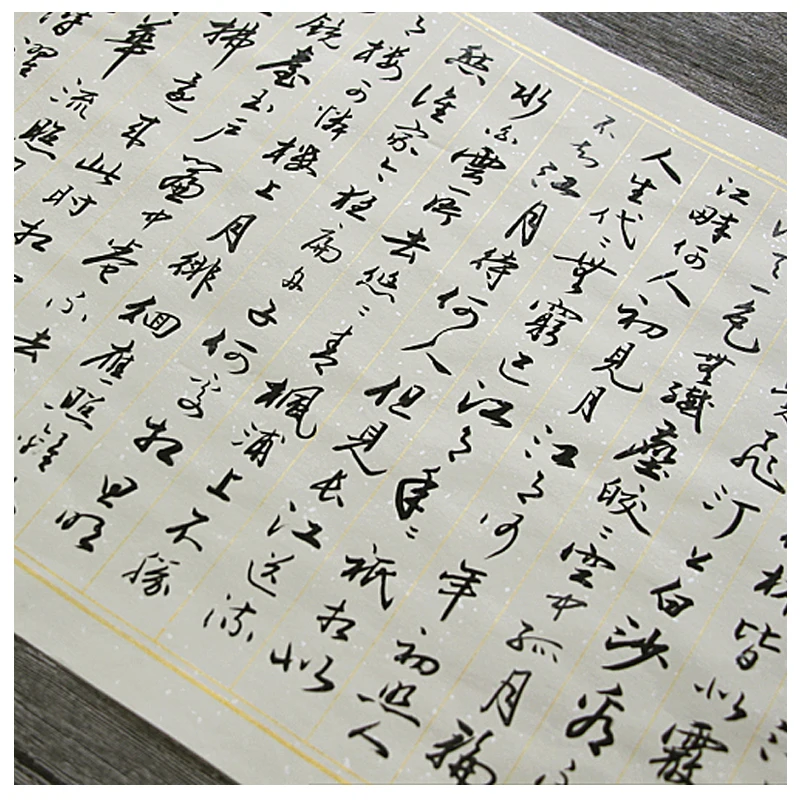 林皆似霰
飛汀上白沙看不
天一色無纖塵皎ゝ空中孤月輪
江畔何人初見月江月何年初照人
人生代ゝ無窮已江月年ゝ祗相似
不知江月待何人但見長江送流
水白雲一片去悠ゝ青楓浦上不勝
愁誰家今夜扁舟子何處相思明
樓可憐樓上月徘徊應照離
鏡臺玉戶簾中卷不去
拂還來此時相
華流照